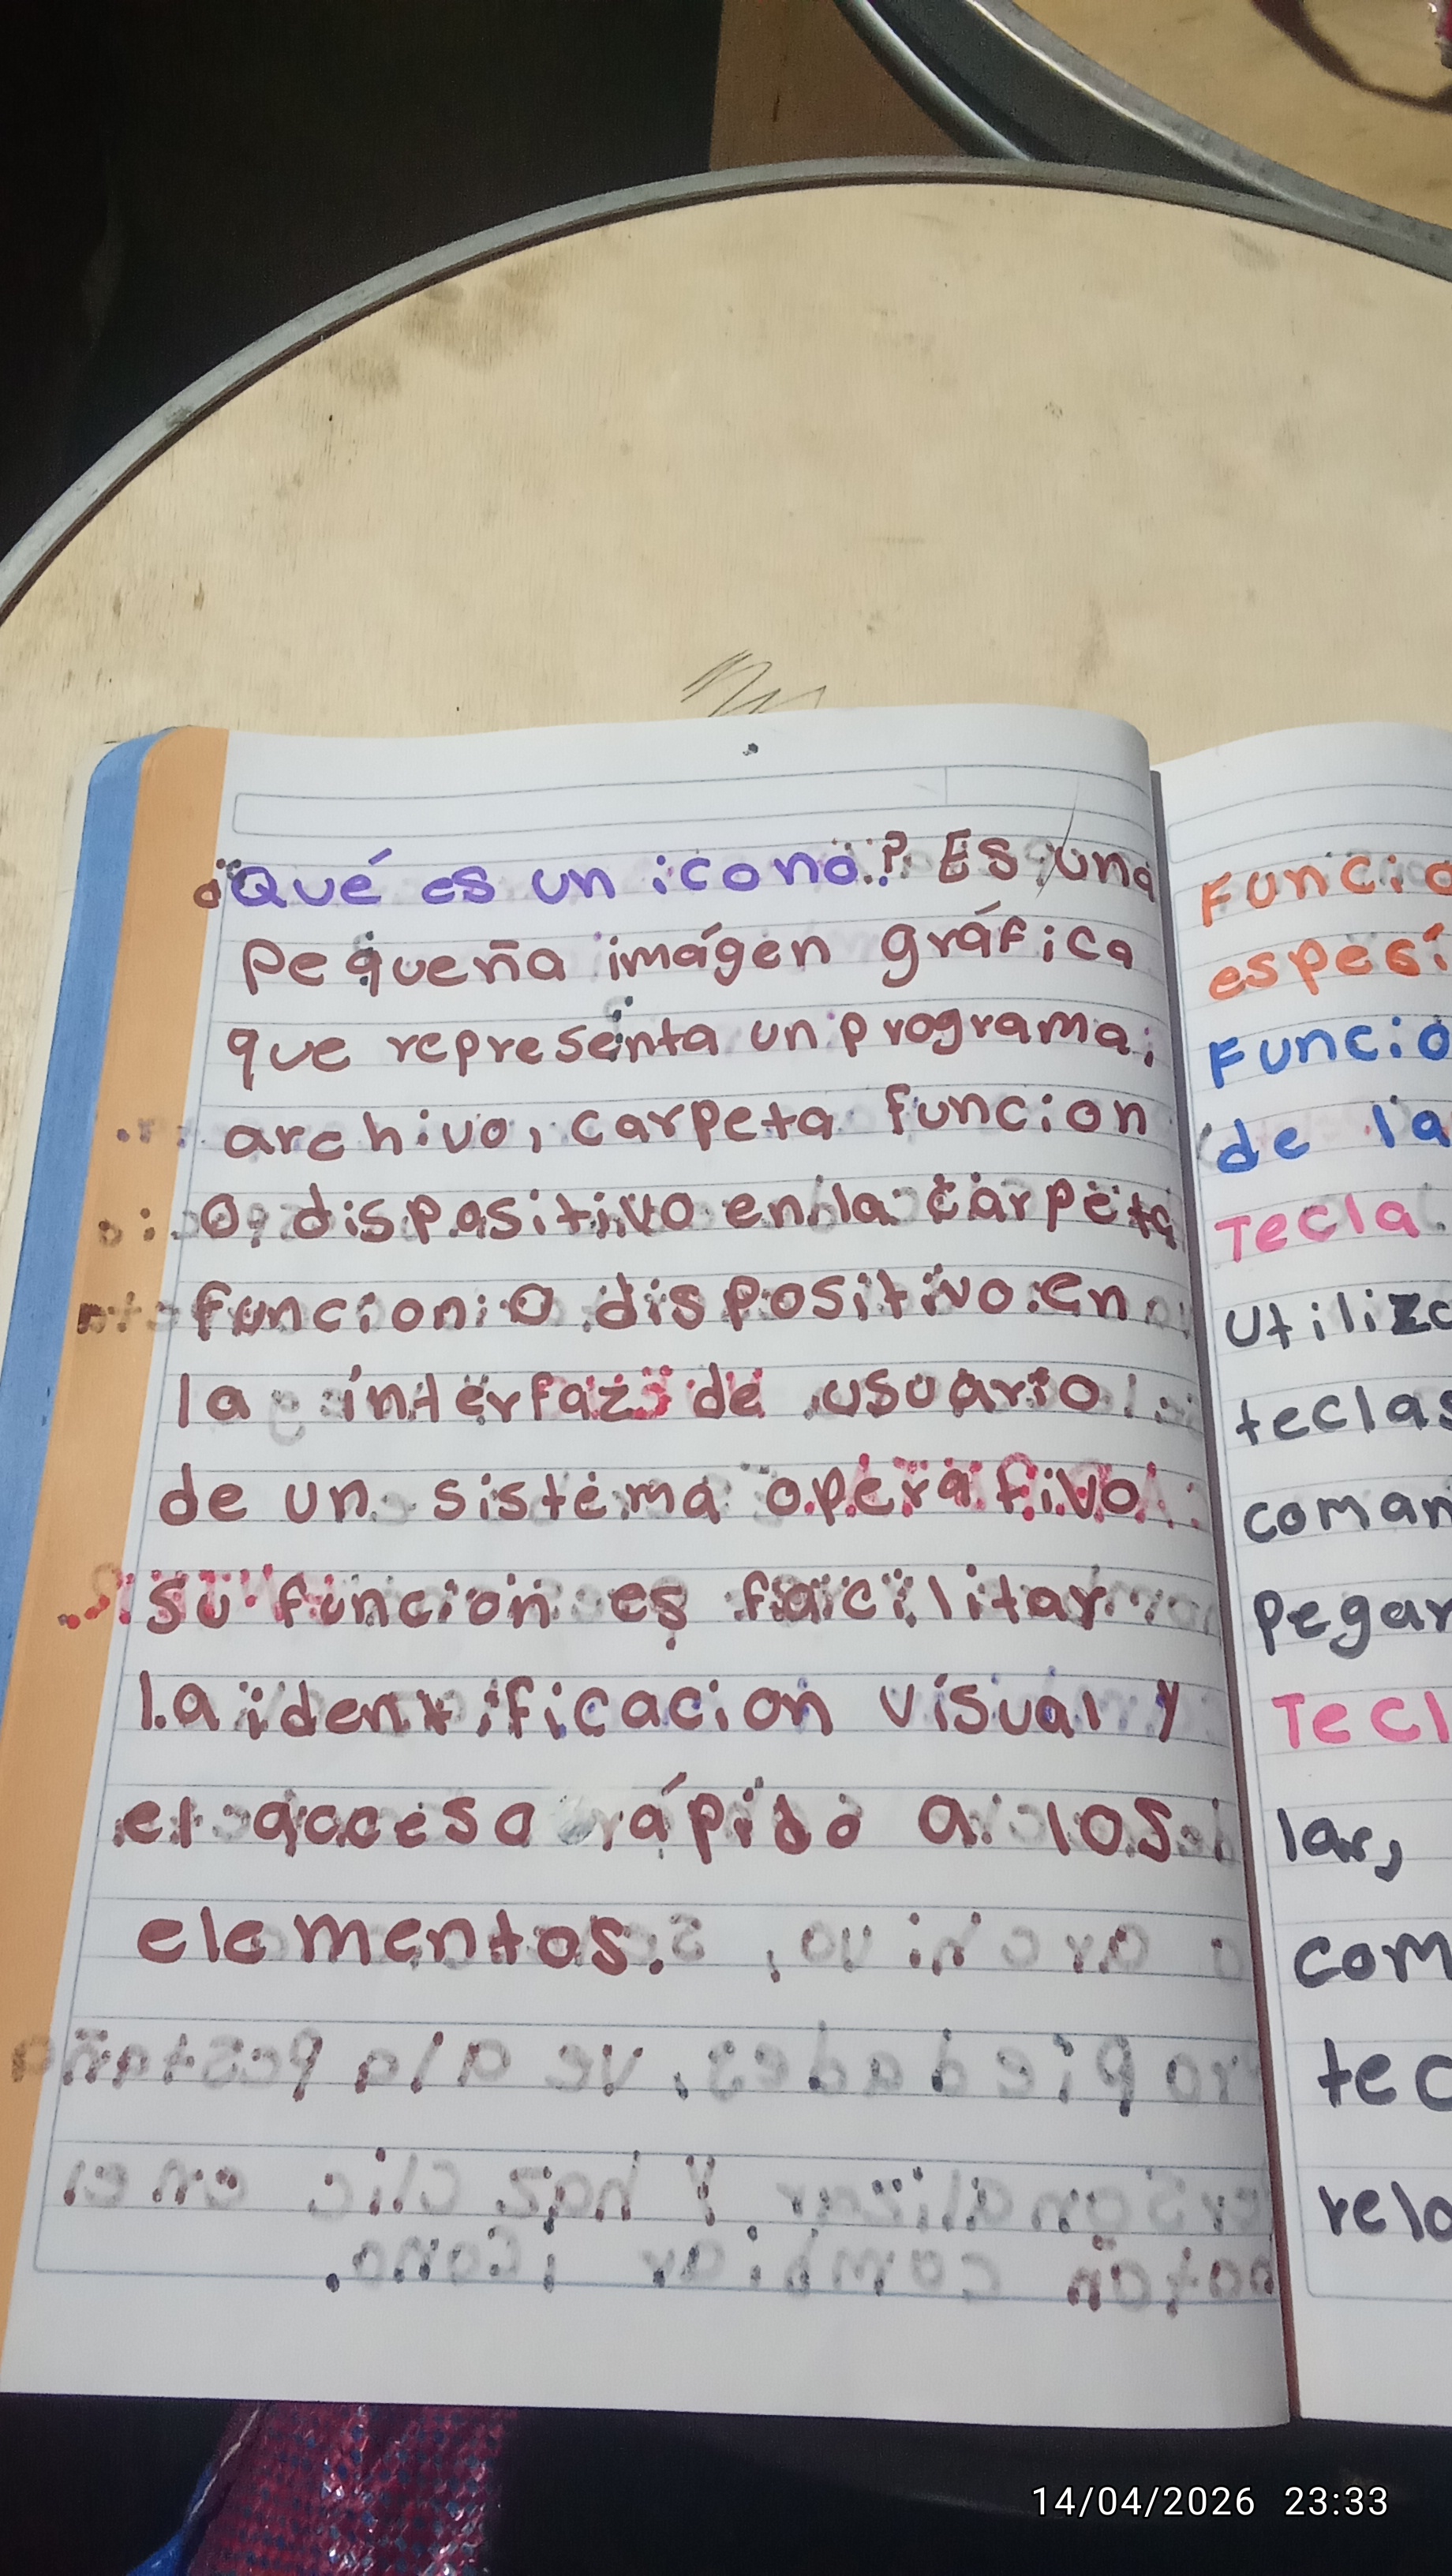 ¿Qué es un icono? Es una
Pequeña imágen gráfica
que representa un programa,
archivo, carpeta funcion
O dispositivo en la carpeta
funcion O dispositivo en
la interfaz de usuario
de un sistema operativo
su funcion es facilitar
la identificacion visual y
el acceso rápido a los
elementos.
Funcio
espesí
Funcio
de la
Tecla
Utiliza
teclas
coman
Pegar
Tecl
lar,
com
tec
relo
14/04/2026 23:33